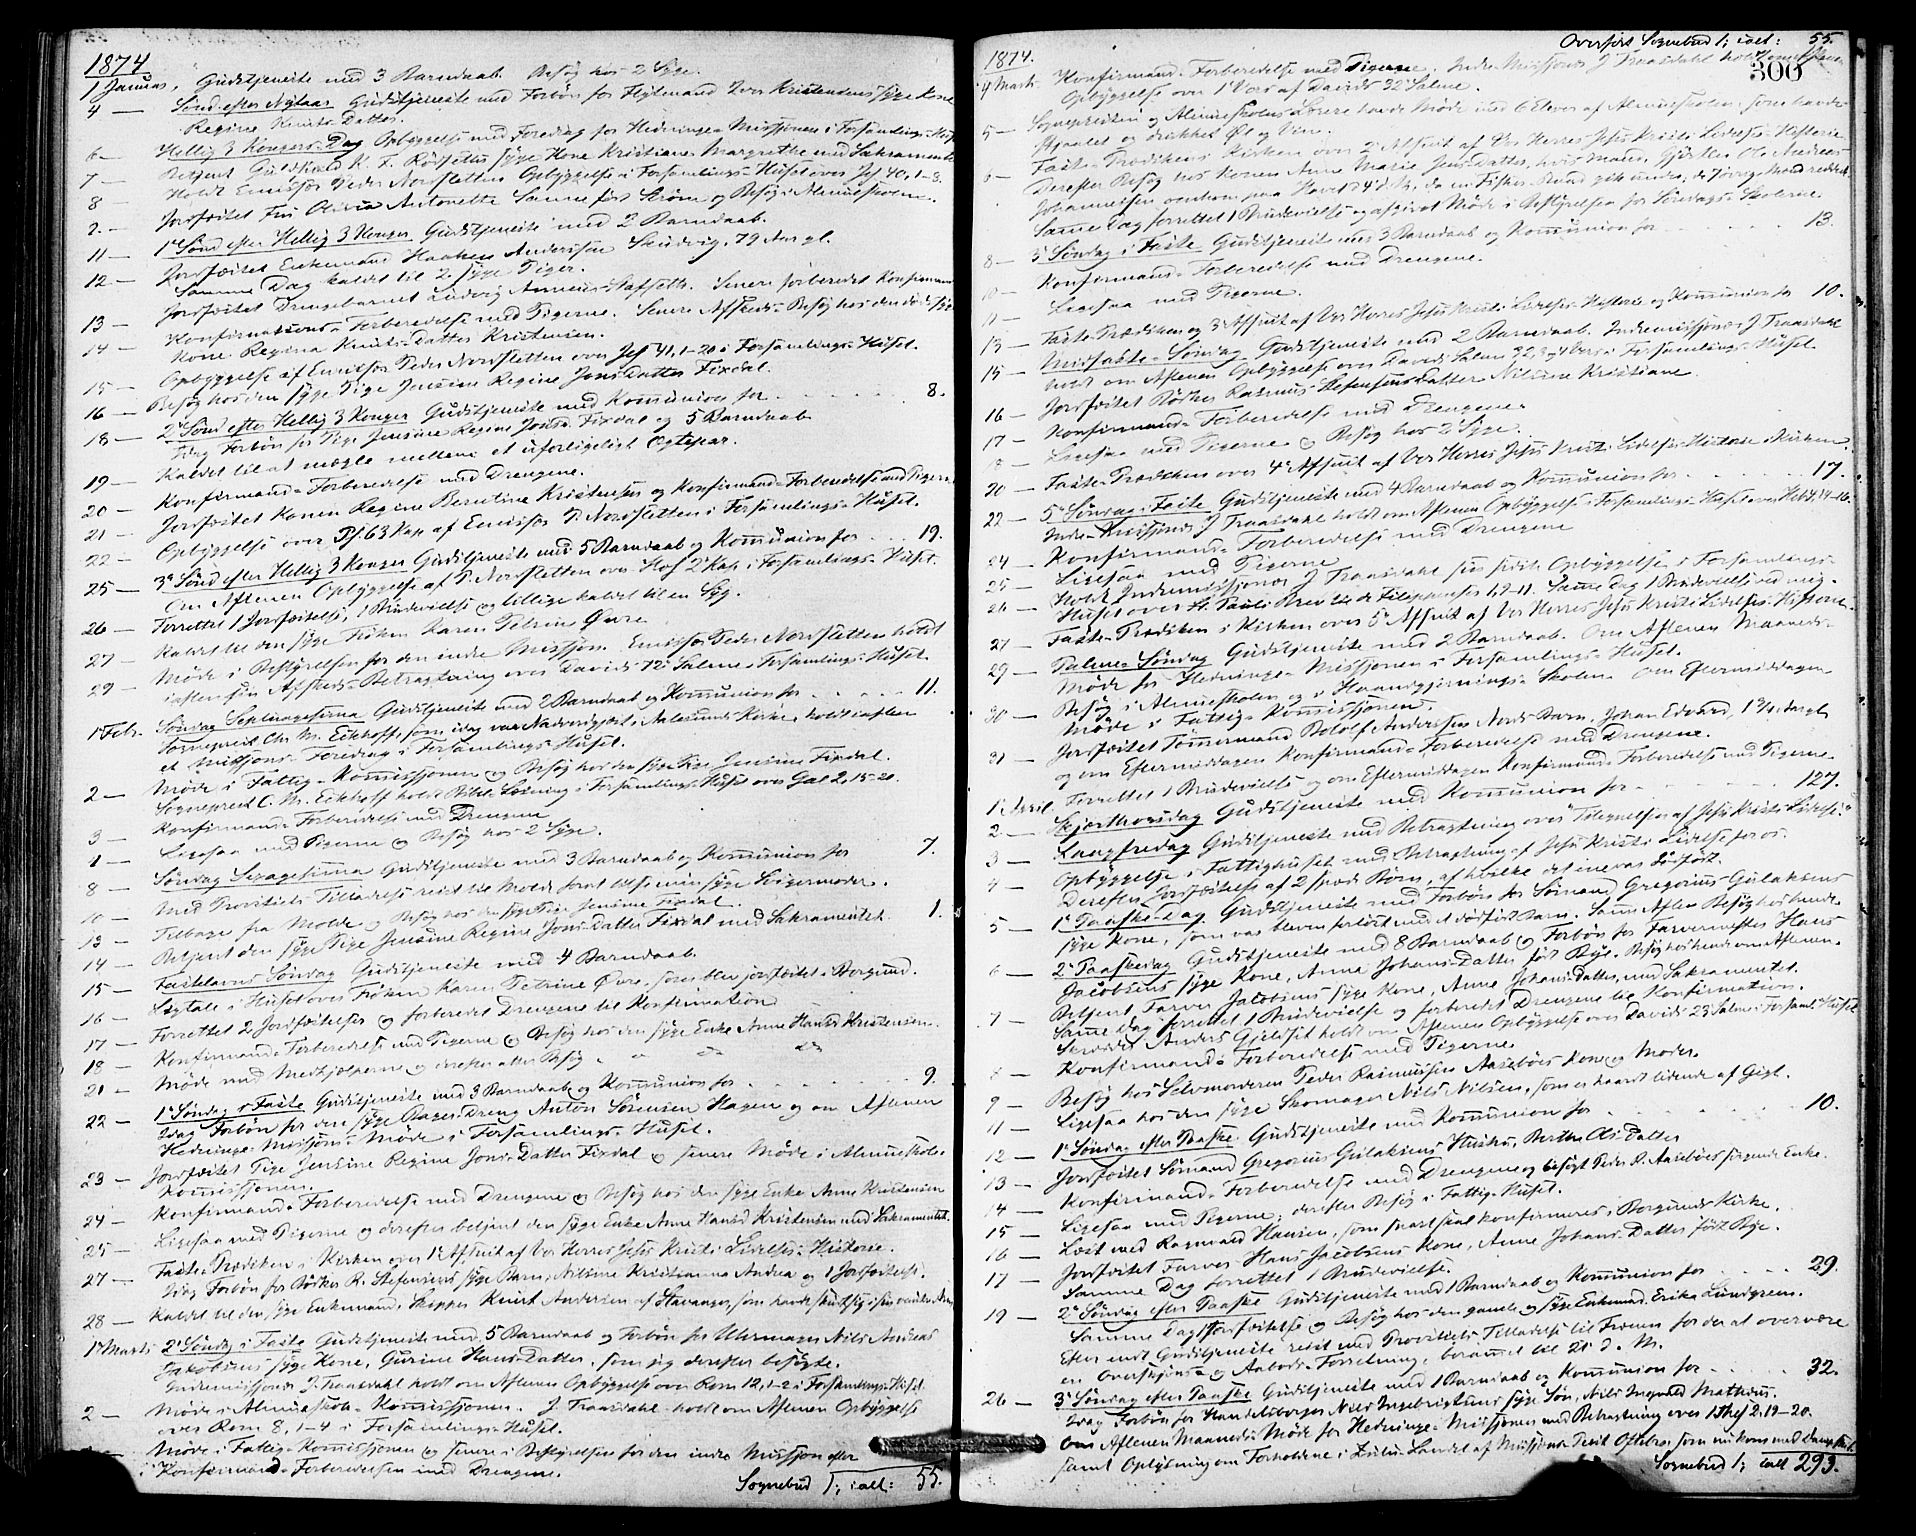 1874
1 Januar, Gudstjeneste med 3 Barndaab. Besøg hos 2 Syge.
4 — Sønd. efter Nytaar Gudstjeneste med Forbøn for Iver Kristensens syge Kone
Regine Knuts-Datter.
6 — Hellig 3 Kongers-Dag Opbyggelse med Foredrag for Hedninge-Missjonen i Forsamlings-Huset
7 — Betjent K. F. syge Kone Kristiane Margrethe med Sakramentet
8 — Holdt Emissær Peder Nordsletten Opbyggelse i Forsamlings-Huset over Jes 40, 1-8.
9 — Jordfæstet Fru Olivia Antonette Sanne født Strøm og Besøg i Almueskolen.
11 — 1e Sønd. efter Hellig 3 Konger Gudstjeneste med 2 Barndaab.
12 — Jordfæstet Enkemand Haaken Anderssen 79 Aar gl.
Samme Dag kaldet til 2 syge Piger.
13 — Jordfæstet Drengebarnet Ludvig Senere forberedet Konfirmand
14 — Konfirmations-Forberedelse med Pigerne. Senere Afskeds-Besøg hos den døds syge
Kone Regina Knuts-Datter Kristensen.
15 — Opbyggelse af Emissær Peder Nordsletten over Jes 41, 1-20 i Forsamlings-Huset.
16 — Besøg hos den syge Pige Jensine Regine Jons-Datter Fixdal.
18 — 2e Sønd. efter Hellig 3 Konger Gudstjeneste med Kommunion for 8.
Idag Forbøn for Pige Jensine Regine Jonsd. Fixdal og 5 Barndaab
19 — Kaldet til at mægle mellem et uforligeligt Ægtepar.
20 — Konfirmand-Forberedelse med Drengene.
21 — Jordfæstet Konen Regine Berntine Kristensen og Konfirmand-Forberedelse med Pigerne
22 — Opbyggelse over Ps. 63 Kap af Emissær P. Nordsletten i Forsamlings-Huset.
25 — 3e Sønd efter Hellig 3 Konger Gudstjeneste med 5 Barndaab og Kommunion for 19.
Om Aftenen Opbyggelse af P. Nordsletten over Hos 2 Kap i Forsamlings-Huset.
26 — Forrettet 1 Jordfæstelse, 1 Brudevielse og tillige kaldet til en Syg.
27 — Kaldet til den syge Frøken Karen Petrine Øvre
29 — Møde i Bestyrelsen for den indre Missjon. Emissær Peder Nordsletten holdt
iaften sin Afskeds-Betragtning over Davids 72e Salme i Forsamlings-Huset.
1e Febr. Søndag Septuagesima Gudstjeneste med 2 Barndaab og Kommunion for 11.
Sognepræst Chr. M. Eckhoff, som idag var Nadvergjæst i Aalesunds Kirke, holdt iaften
et Missjons-Foredrag i Forsamlings-Huset.
2 — Møde i Fattig-Kommissjonen og Besøg hos den syge Pige Jensine Fixdal.
Sognepræst C. M. Eckhoff holdt Bibel-Læsning i Forsamlings-Huset over Gal 2, 15-20.
3 — Konfirmand-Forberedelse med Drengene
4 — Ligesaa med Pigerne og Besøg hos 2 Syge.
8 — Søndag Sexagesima Gudstjeneste med 3 Barndaab og Kommunion for 7.
10 — Med Provstiets Tilladelse reist til Molde samt til min syge Svigermoder.
13 — Tilbage fra Molde og Besøg hos den syge Pige Jensine Fixdal.
14 — Betjent den syge Pige Jensine Regine Jons-Datter Fixdal med Sakramentet. 1.
15 — Fastelavns Søndag Gudstjeneste med 4 Barndaab.
16 — Ligtale i Huset over Frøken Karen Petrine Øvre, som blev jordfæstet i Borgund.
17 — Forrettet 2 Jordfæstelser og forberedet Drengene til Konfirmation
18 — Konfirmand-Forberedelse med Pigerne og Besøg hos den syge Enke Anne Hansd. Kristensen.
21 — Møde med Medhjælperne og derefter atter Besøg
22 — 1e Søndag i Faste Gudstjeneste med 3 Barndaab og Kommunion for 9.
Idag Forbøn for den syge Bager-Dreng Anton Sørensen Hagen og om Aftenen
Hedninge-Missjons-Møde i Forsamlings-Huset.
23 — Jordfæstet Pige Jensine Regine Jons-Datter Fixdal og senere Møde i Almueskole-
Kommissjonen.
24 — Konfirmand-Forberedelse med Drengene og Besøg hos den syge Enke Anne Kristensen
25 — Ligesaa med Pigerne og derefter betjent den syge Enke Anne Hansd Kristensen med Sakramentet.
27 — Faste-Prædiken i Kirken over 1e Afsnit af Vor Herres Jesu Kristi Lidelses-Historie.
Idag Forbøn for Bødker R. Steffensens syge Barn, Nilsine Kristianna Andrea og 1 Jordfæstelse.
28 — Kaldet til den syge Enkemand, Skipper Knut Andersen af Stavanger, som havde
1e Marts 2e Søndag i Faste Gudstjeneste med 5 Barndaab og Forbøn for Uhrmager Nils Andreas
Jakobsens syge Kone, Gurine Hans-Datter, som jeg derefter besøgte.
Indremissjonær J. Traasdahl holdt om Aftenen Opbyggelse over Rom 12, 1-2 i Forsamlings-Huset.
2 — Møde i Almueskole-Kommissjonen. J. Traasdahl holdt om Aftenen Opbyggelse
over Rom 8, 1-4 i Forsamlings-Huset.
Møde i Fattig-Kommissjonen og senere i Bestyrelsen for den indre Missjon efter
Konfirmand-Forberedelsen med Drengene.
Sognebud 1; ialt: 55.
Overført Sognebud 1; ialt: 55.
300
1874.
4 Marts Konfirmand-Forberedelse med Pigerne. Indre Missjonær J. Traasdahl holdt
Opbyggelse over 1e Vers af Davids 32 Salme.
5 — Sognepræsten og Almueskolens Lærere havde Møde med 6 Elever af Almueskolen, som havde
stjaalet og drukket Øl og Vin.
6 — Faste-Prædiken i Kirken over 2e Afsnit af Vor Herres Jesu Kristi Lidelses-Historie
Derefter Besøg hos Konen Anne Marie Jens-Datter, hvis Mand, Gjørtler Ole Andreas
Johannesen omkom paa Havet d 4 d. M., da en Fisker-Baad gik under, de øvrige Mand reddet.
Samme Dag forrettet 1 Brudevielse og afgivet Møde i Bestyrelsen for Søndags-Skolerne.
8 — 3e Søndag i Faste Gudstjeneste med 3 Barndaab og Kommunion for 13.
10 — Konfirmand-Forberedelse med Drengene.
11 — Ligesaa med Pigerne.
13 — Faste-Prædiken og 3 Afsnit af Vor Herres Jesu Kristi Lidelses Historie og Kommunion for 10.
15 — Midfaste-Søndag Gudstjeneste med 2 Barndaab. Indremissjonær J Traasdahl
holdt om Aftenen Opbyggelse over Davids Salme 32, 3 og 4 Vers i Forsamlings-Huset.
16 — Jordfæstet Bødker Rasmus Steffensens Datter Nilsine Kristiane.
17 — Konfirmand-Forberedelse med Drengene.
18 — Ligesaa med Pigerne og Besøg hos 2 Syge.
20 — Faste-Prædiken over 4e Afsnit af Vor Herres Jesu Kristi Lidelses-Historie i Kirken.
22 — 5e Søndag i Faste Gudstjeneste med 4 Barndaab og Kommunion for 17.
Indre-Missjonær J Traasdahl holdt om Aftenen Opbyggelse i Forsamlings-Huset over Heb 4, 14-16.
24 — Konfirmand-Forberedelse med Drengene
25 — Ligesaa med Pigerne
26 — Holdt Indremissjonær J Traasdahl sin sidste Opbyggelse i Forsamlings-
Huset over St. Pauli Brev til de Filippenser 1, 9-11. Samme Dag 1 Brudevielse ved mig.
27 — Faste-Prædiken i Kirken over 5e Afsnit af Vor Herres Jesu Kristi Lidelses-Historie.
29 — Palme-Søndag Gudstjeneste med 2 Barndaab. Om Aftenen Maaneds-
Møde for Hedninge-Missjonen i Forsamlings-Huset.
30 — Besøg i Almueskolen og i Haandgjernings-Skolen. Om Eftermiddagen
Møde i Fattig-Kommissjonen.
31 — Jordfæstet Tømmermand Bololf Anderssen Nords Barn, Johan Edvard, 1 3/4 Aar gl
og om Eftermiddagen Konfirmand-Forberedelse med Drengene.
1e April. Forrettet 1 Brudevielse og om Eftermiddagen Konfirmand-Forberedelse med Pigerne.
2 — Skjærthorsdag Gudstjeneste med Kommunion for 127.
3 — Langfredag Gudstjeneste med Betragtning over "Tilegnelsen af Jesu Kristi Lidelse."
4 — Opbyggelse i Fattighuset med Betragtning af Jesu Kristi Lidelse for os.
Derefter Jordfæstelse af 2 spæde Børn, af hvilke det ene var dødfødt.
5 — 1e Paaske-Dag Gudstjeneste med Forbøn for Sømand Gregorius Gulaksens
syge Kone, som var bleven forløst med et dødfødt Barn. Samme Aften Besøg hos hende.
6 — 2e Paaskedag Gudstjeneste med 8 Barndaab og Forbøn for Farvermester Hans
Jacobsens syge Kone, Anne Johans-Datter født Bye. Besøg hos hende om Aftenen.
7 — Betjent Farver Jacobsens syge Kone, Anne Johans-Datter, med Sakramentet.
Samme Dag forrettet 1 Brudevielse og forberedet Drengene til Konfirmation.
Skrædder Anders Gjeldset holdt om Aftenen Opbyggelse over Davids 23 Salme i Forsaml. Huset
8 — Konfirmand-Forberedelse med Pigerne.
9 — Besøg hos Selvmorderen Peder Rasmussen Aasebøes Kone og Moder.
11 — Ligesaa hos den syge Skomager Nils Nilsen, som er haardt lidende af Gigt.
12 — 1e Søndag efter Paaske Gudstjeneste med Kommunion for 10.
13 — Jordfæstet Sømand Gregorius Gulaksens Hustru, Berthe Ols-Datter
14 — Konfirmand-Forberedelse med Drengene og besøgt Peder R. Aasebøes sørgende Enke.
15 — Ligesaa med Pigerne; derefter Besøg i Fattig-Huset.
16 — Læst med Ragnvald Hansen, som snart skal konfirmeres i Borgunds Kirke.
17 — Jordfæstet Farver Hans Jacobsens Kone, Anne Johans-Datter født Bye.
Samme Dag forrettet 1 Brudevielse.
19 — 2e Søndag efter Paaske Gudstjeneste med 1 Barndaab og Kommunion for 29.
Samme Dag 1 Jordfæstelse og Besøg hos den gamle og syge Enkemand Erika Lundgreen.
Efter endt Gudstjeneste reist med Provstiets Tilladelse til for der at overvære
en Overskjøns- og Aabods-Forretning, berammet til 21 d. M.
26 — 3e Søndag efter Paaske Gudstjeneste med 1 Barndaab og Kommunion for 32.
Idag Forbøn for Handelsborger Nils Ingebrigtsens syge Søn, Nils Ingvald Mathias.
Om Aftenen Maaneds-Møde for Hedninge-Missjonen med Betragtning over 1 Thes 2, 19-20.
samt Oplysning om Forholdene i Zulu-Landet af Missjonær Oftebro, som nu kom med
Sognebud 1; ialt 293.